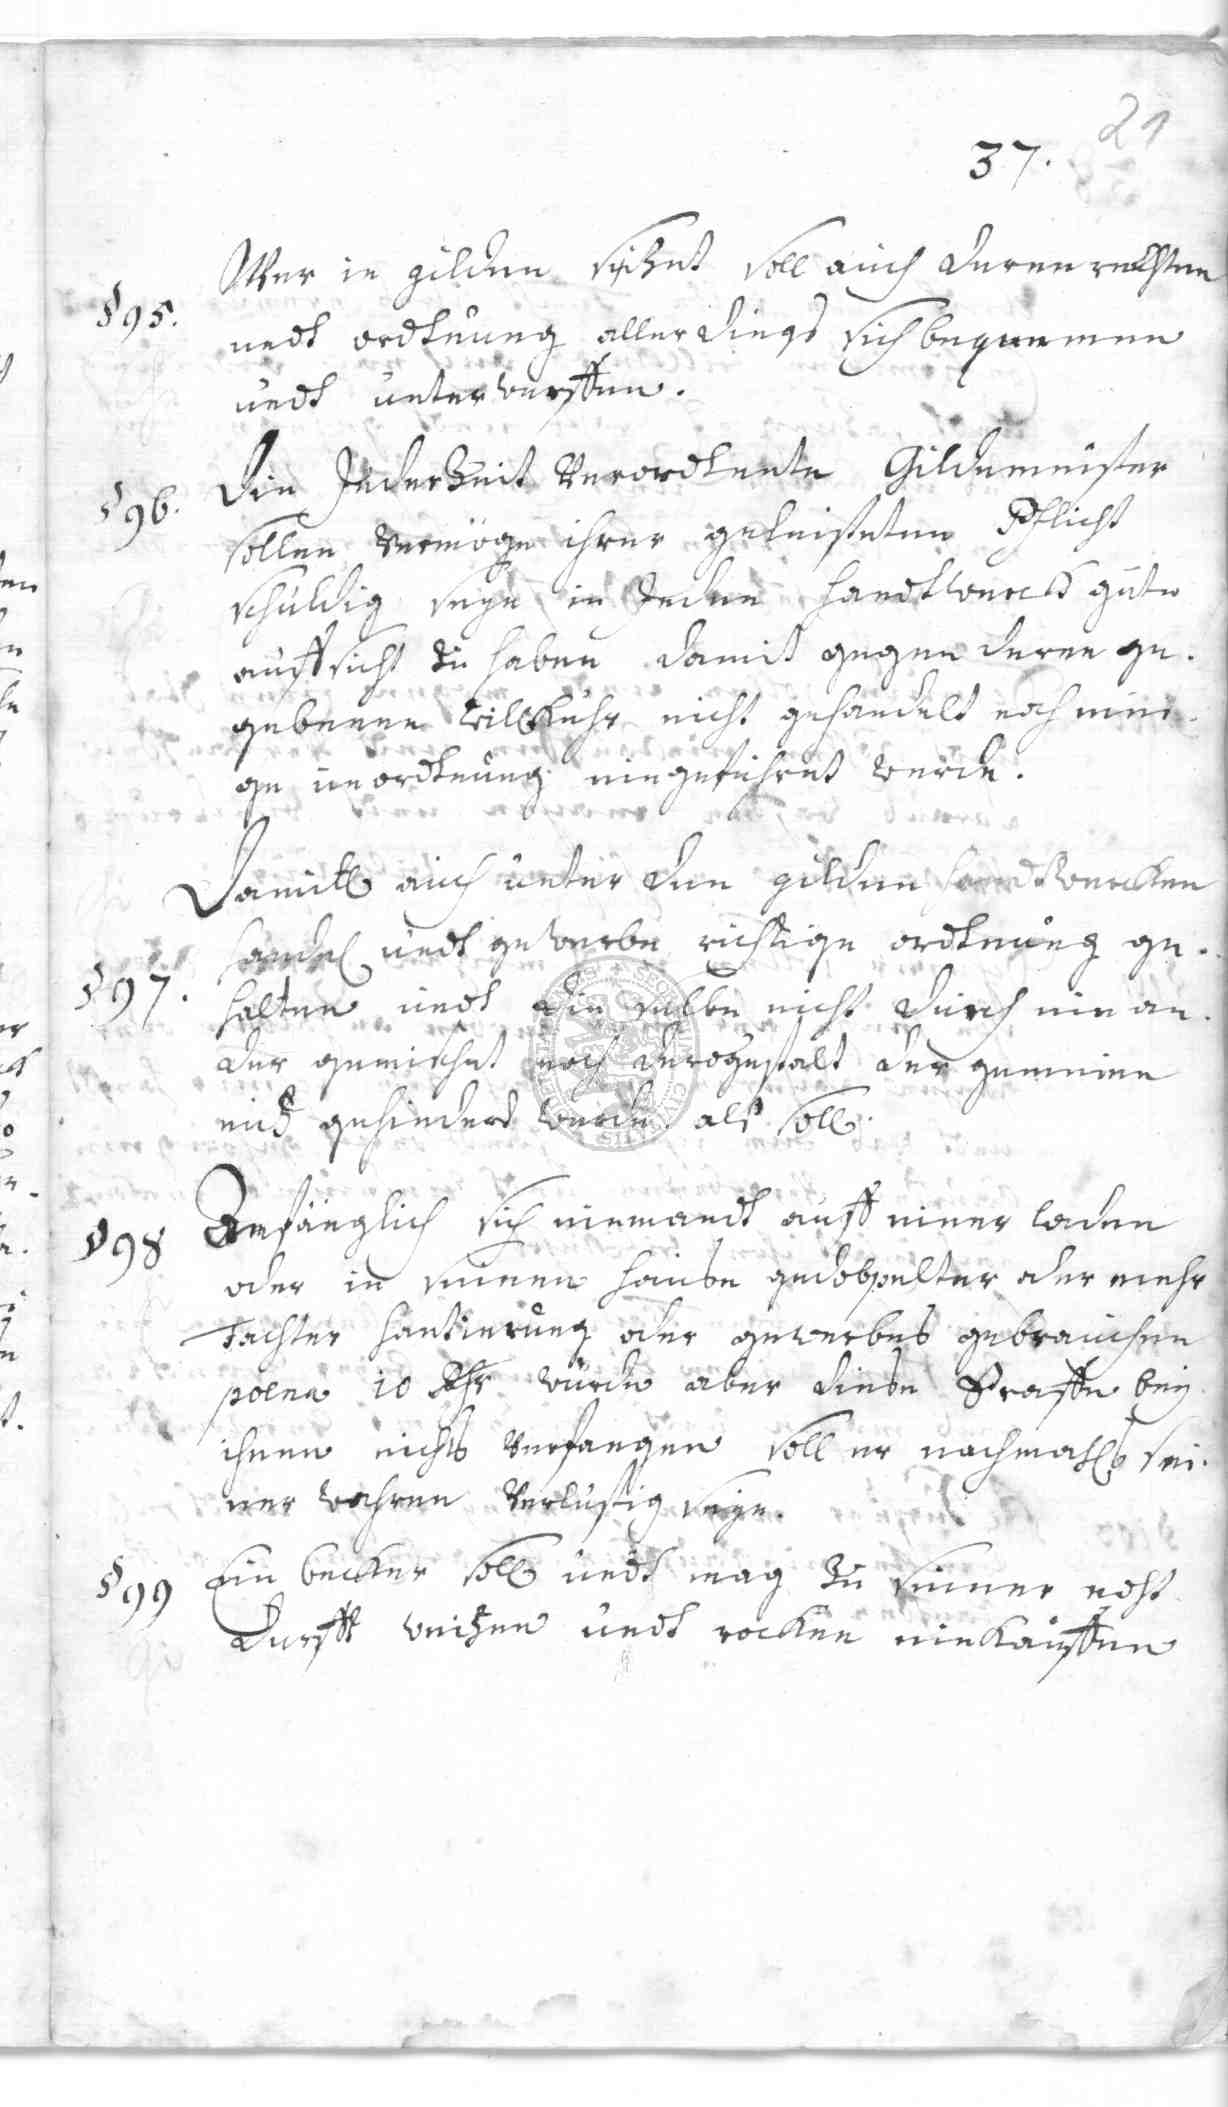 21
37.
Wer in gilden sitzet soll auch deren rechten
§ 95.
undt ordtnung aller dings sich bequemen
undt unterwerffen.
Die Jederzeit Verordtente Gildemeister
§ 96.
sollen Vermöge ihrer geleisteten Pflicht
schuldig seyn in Jeden handtwerck gute
auffsicht zu haben damit gegen deren ge-
gebenen willkuhr nicht gehandelt noch eini-
ge unordtnung eingeführet werde.
Damitt auch unter den gilden handtwercken
handel undt gewerbe richtige ordtnung ge-
§ 97.
halten undt die selbe nicht durch ein an-
der gemischet noch derogestalt der gemeine
nutz gehindert werde. als soll.
§ 98
Anfänglich sich niemandt auff einer laden
oder in seinen hause gedobpelter oder mehr
fachter hantierung oder gewerbes gebrauchen
poena 10 Rthr würde aber diese Straffe bey
ihnen nichts Verfangen soll er nachmahls sei-
ner wahren Verlustig seyn.
§ 99
Ein becker soll undt mag zu seiner noht
durfft weitzen undt rocken einkauffen